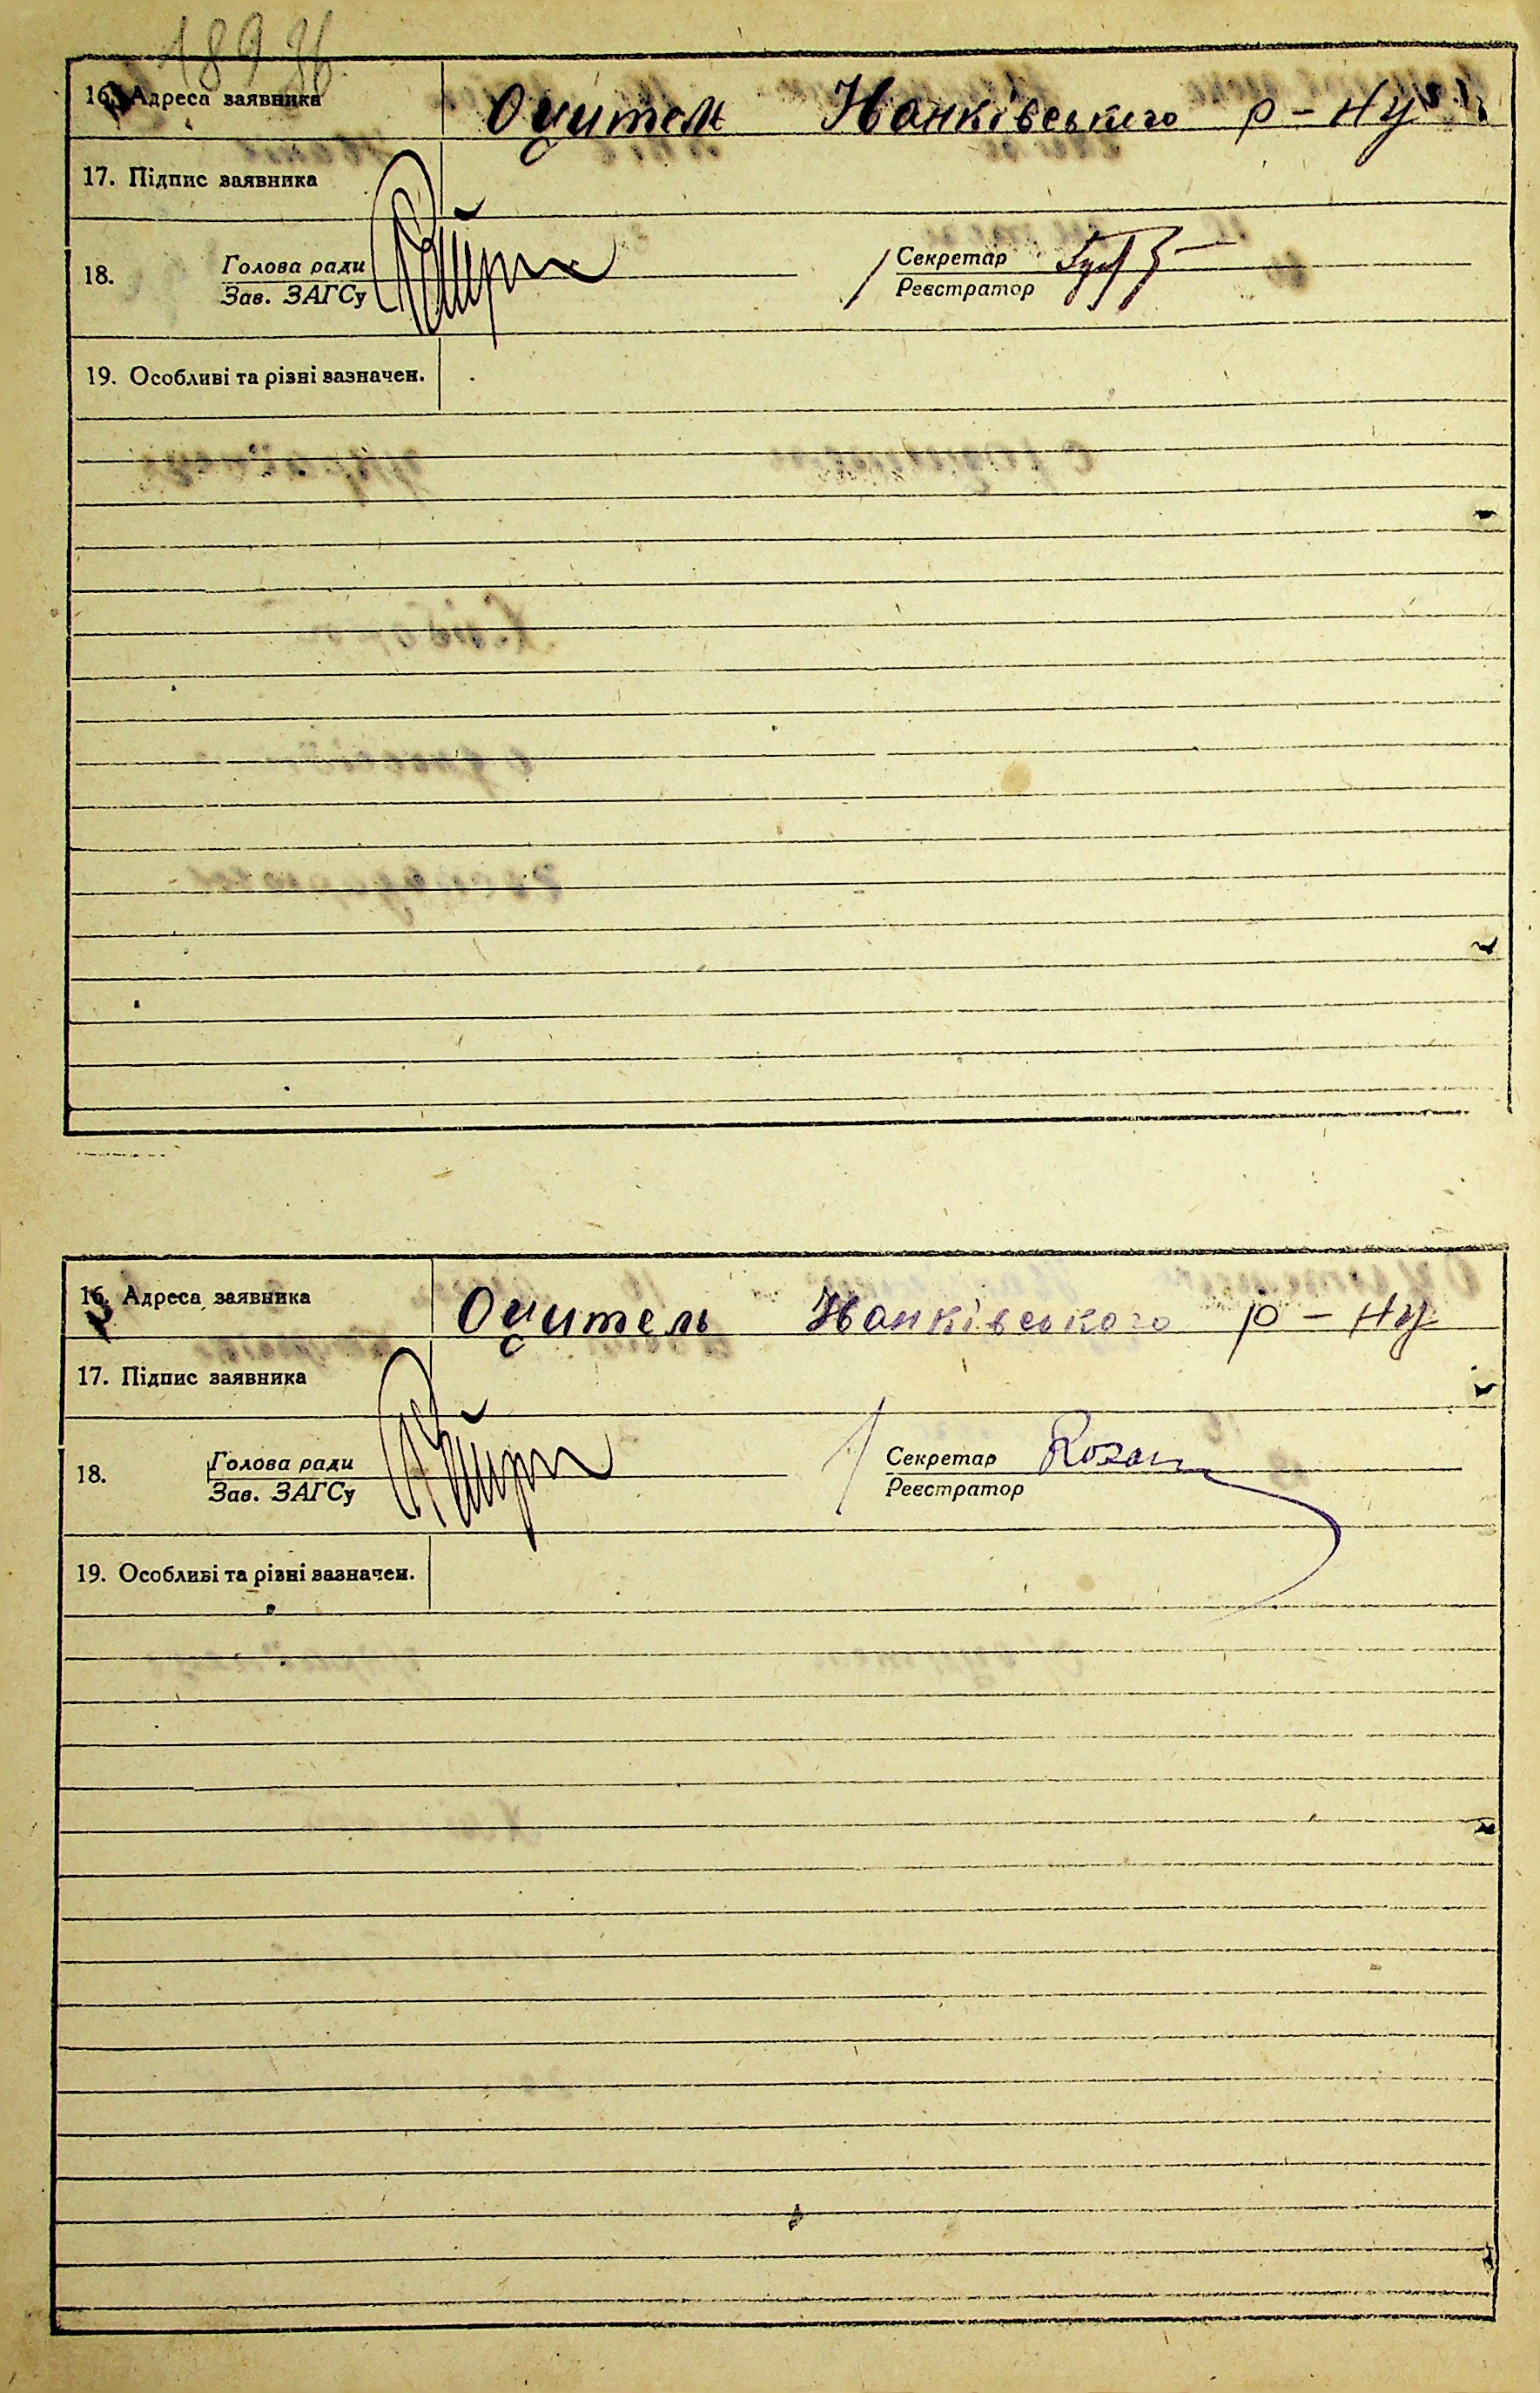 189 зв.
16. Адреса заявника Оцитель Иванківського р-ну
17. Підпис заявника
18. Голова ради Секретар
Зав. ЗАГСу Реєстратор
19. Особливі та різні зазначен.
16. Адреса заявника Оцитель Иванківського р-ну
17. Підпис заявника
18. Голова ради Секретар
Зав. ЗАГСу Реєстратор
19. Особливі та різні зазначен.